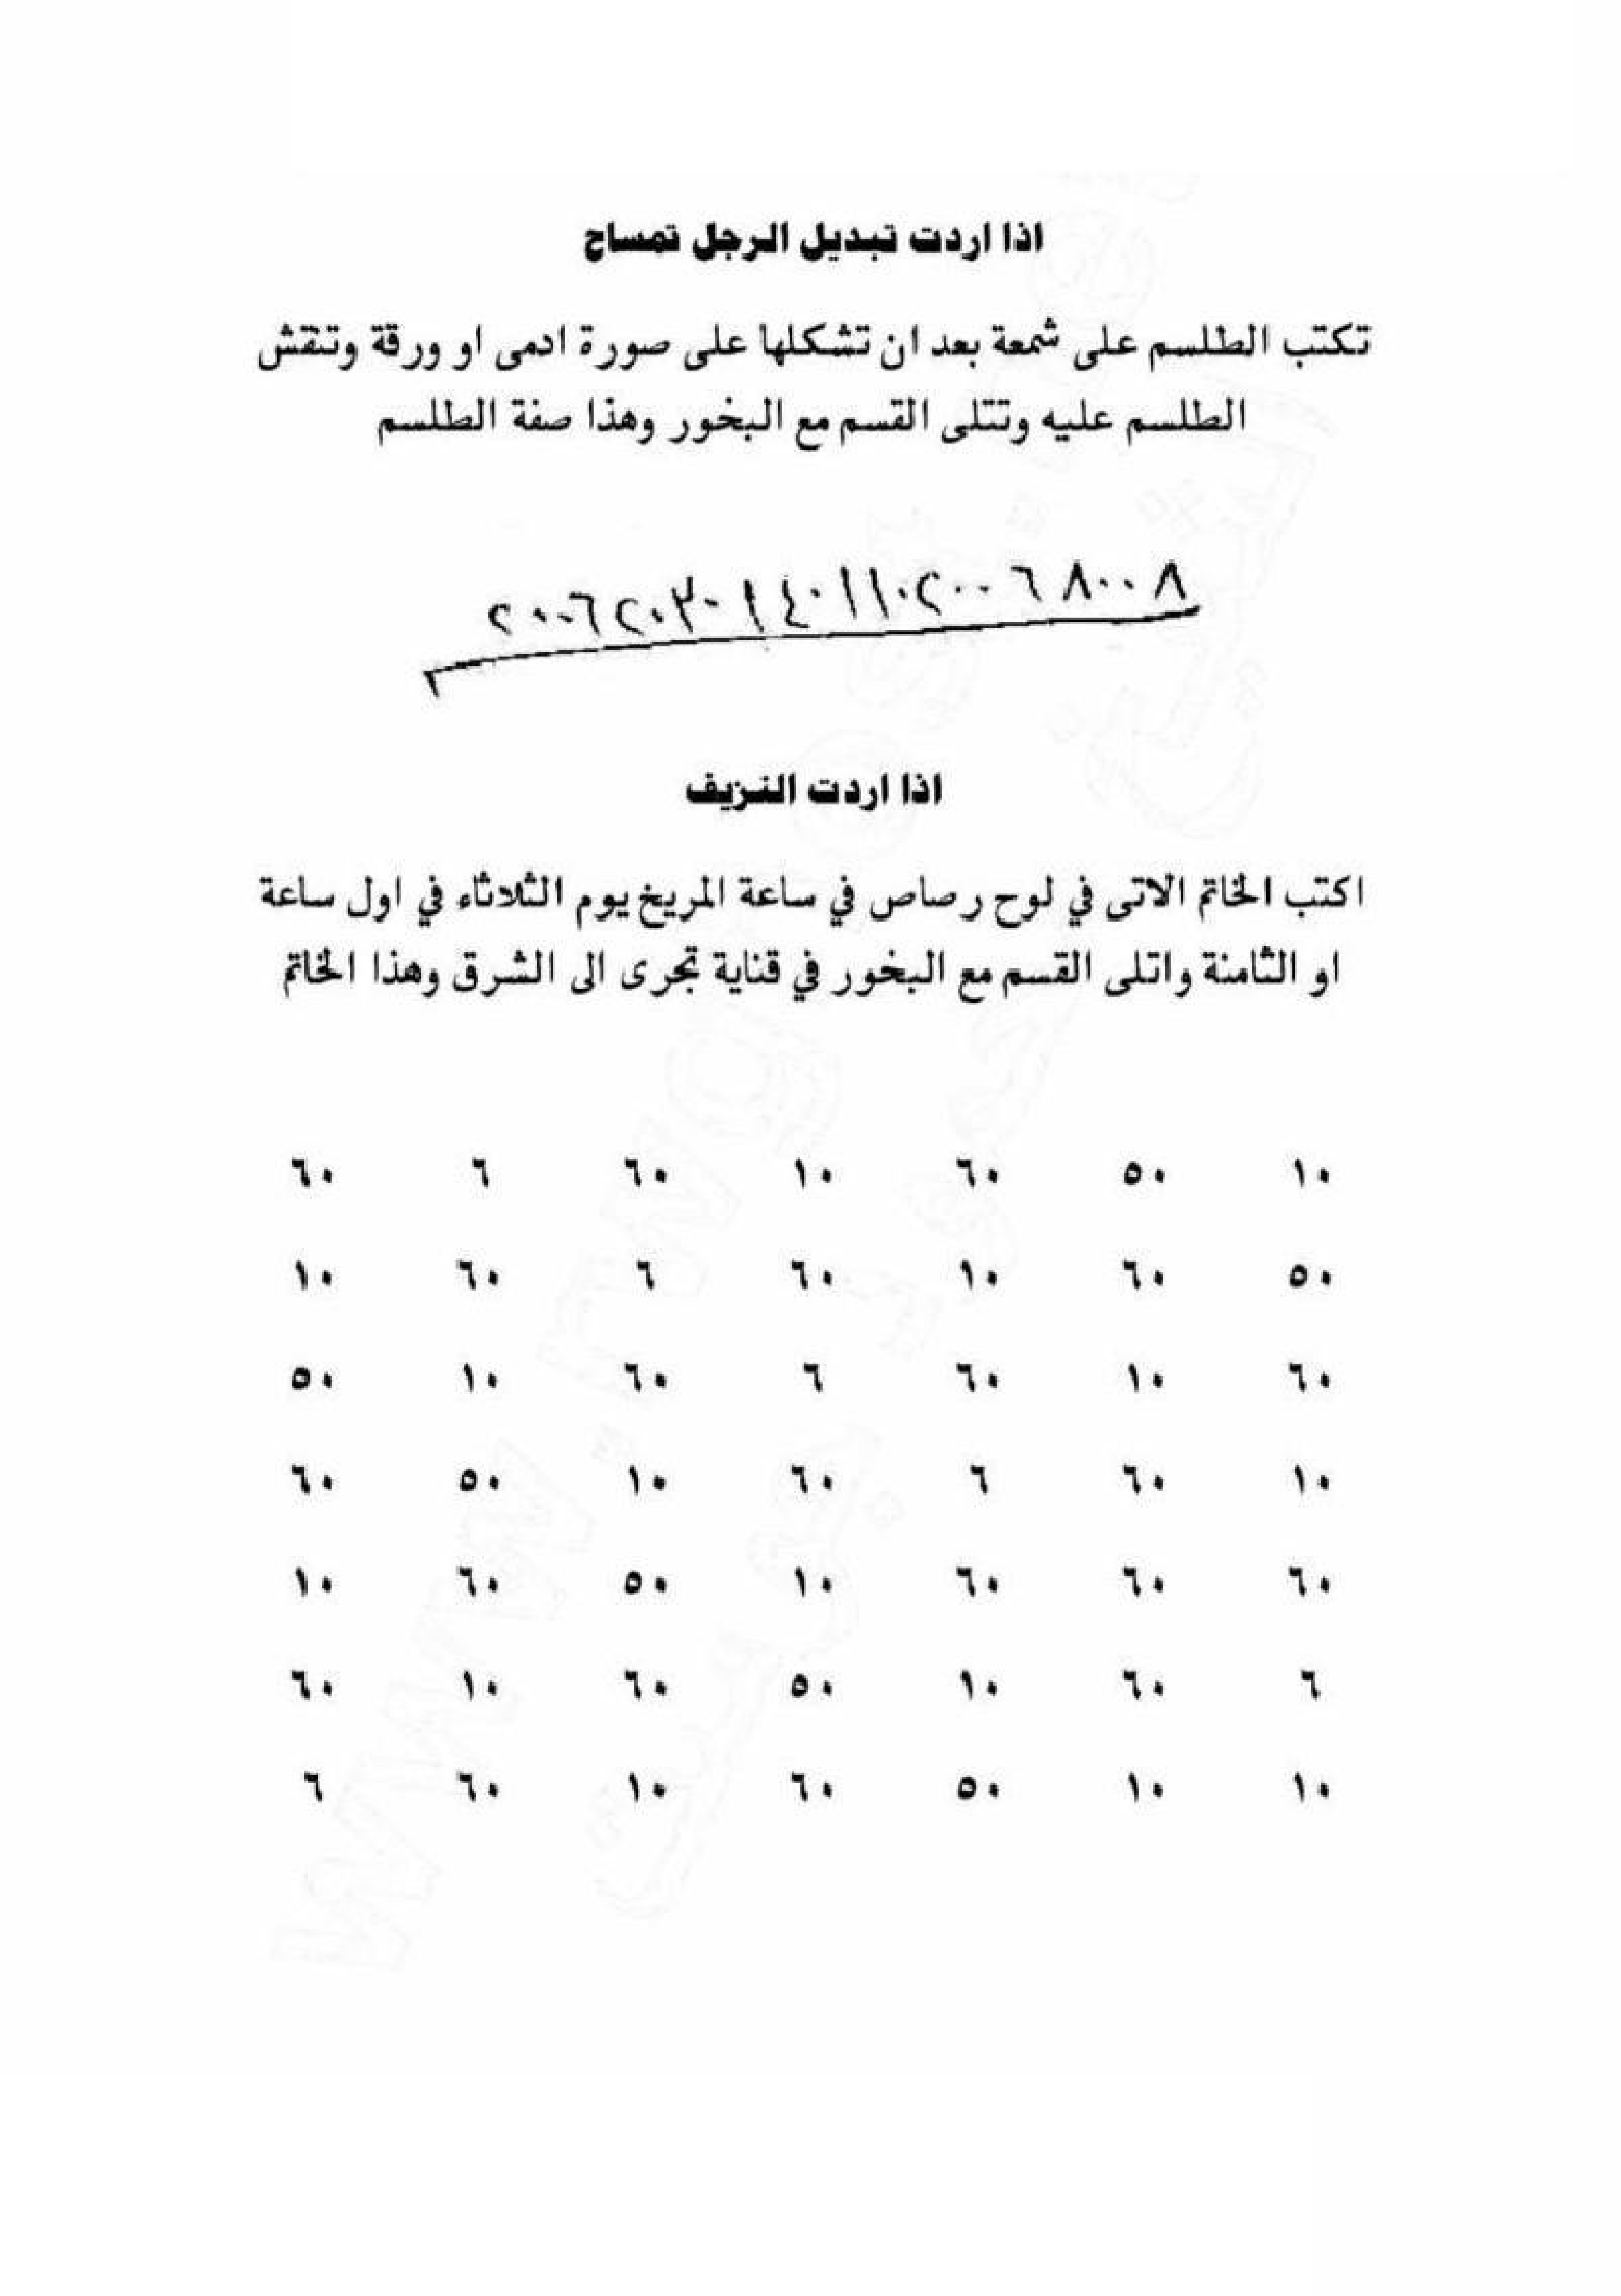 اذا اردت تبديل الرجل تمساح
تكتب الطلسم على شمعة بعد ان تشكلها على صورة ادمى او ورقة وتنقش
الطلسم عليه وتتلى القسم مع البخور وهذا صفة الطلسم
٢٠٠٦٢٠٣٠١٤٠١١٠٢٠٠٦٨٠٠٨
اذا اردت النزيف
اكتب الخاتم الاتى في لوح رصاص في ساعة المريخ يوم الثلاثاء في اول ساعة
او الثامنة واتلى القسم مع البخور في قناية تجرى الى الشرق وهذا الخاتم
٦٠ ٦ ٦٠ ١٠ ٦٠ ٥٠ ١٠
١٠ ٦٠ ٦ ٦٠ ١٠ ٦٠ ٥٠
٥٠ ١٠ ٦٠ ٦ ٦٠ ١٠ ٦٠
٦٠ ٥٠ ١٠ ٦٠ ٦ ٦٠ ١٠
١٠ ٦٠ ٥٠ ١٠ ٦٠ ٦٠ ٦٠
٦٠ ١٠ ٦٠ ٥٠ ١٠ ٦٠ ٦
٦ ٦٠ ١٠ ٦٠ ٥٠ ١٠ ١٠